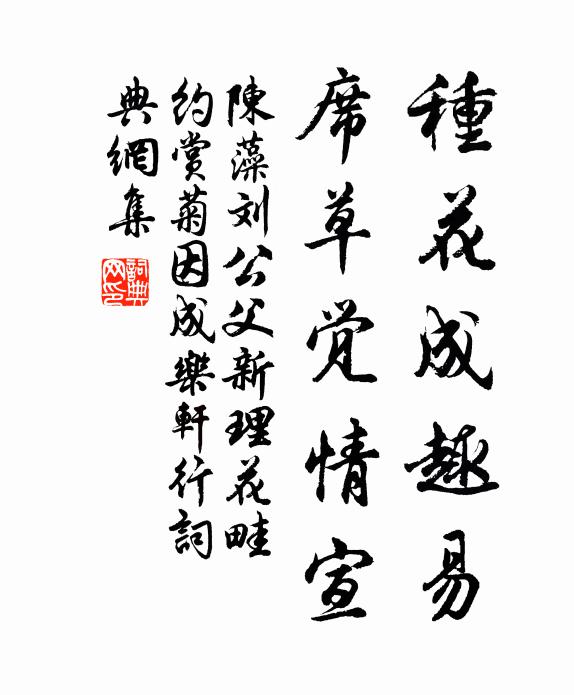 種花成趣易
席草觉情宣
陳藻刘公父新理花畦
约赏菊因成樂軒行詞
典網集
詞典网印